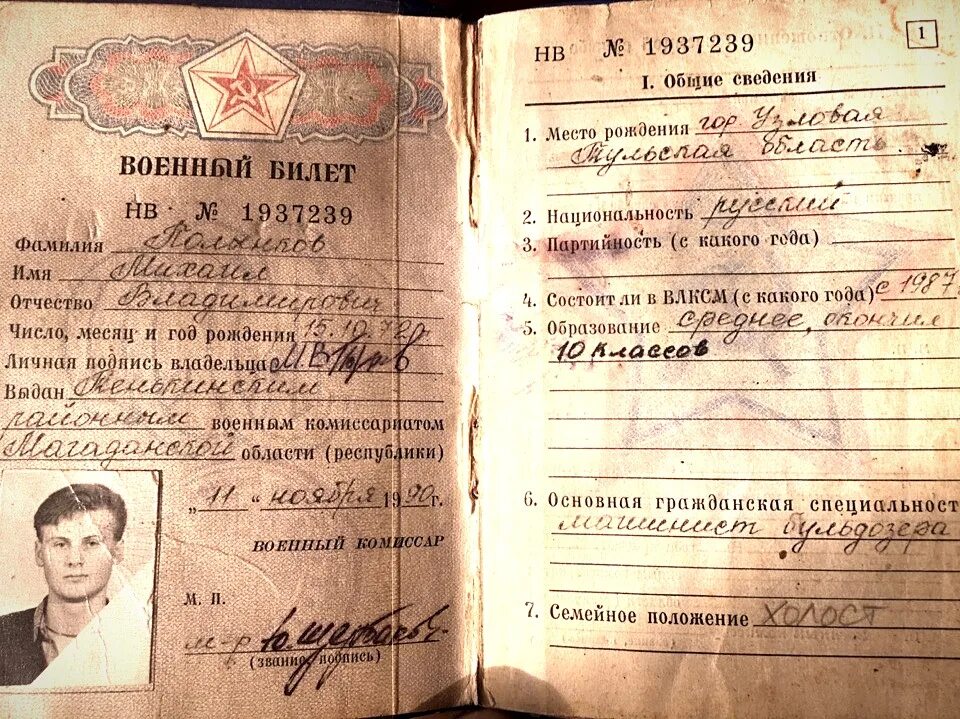 ВОЕННЫЙ БИЛЕТ
НВ № 1937239
Фамилия Полынков
Имя Михаил
Отчество Владимирович
Число, месяц и год рождения 15.10.72г
Личная подпись владельца
Выдан Тенькинским
районным военным комиссариатом
Магаданской области (республики)
„11“ ноября 1990г.
ВОЕННЫЙ КОМИССАР
М. П.
м-р
(звание, подпись)
1
НВ № 1937239
I. Общие сведения
1. Место рождения гор Узловая
Тульская область
2. Национальность русский
3. Партийность (с какого года)
4. Состоит ли в ВЛКСМ (с какого года) с 1987
5. Образование среднее, окончил
10 классов
6. Основная гражданская специальност
машинист бульдозера
7. Семейное положение ХОЛОСТ